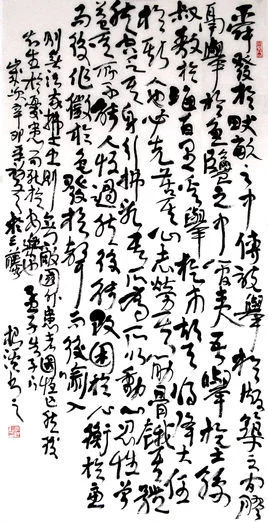 舜發於畎畝之中傅說舉於版築之間膠
鬲舉於魚鹽之中管夷吾舉於士孫
叔敖於海百里奚舉於市故天將降大任
於斯人也必先苦其心志勞其筋骨餓其體
膚空乏其身行拂亂其所為所以動心忍性曾
益其所不能人恆過然後能改困於心衡於慮
而後作徵於色發於聲而後喻入
則無法家拂士出則無敵國外患者國恆亡然後
知生於憂患而死於安樂也孟子告子下
歲次辛卯 書之